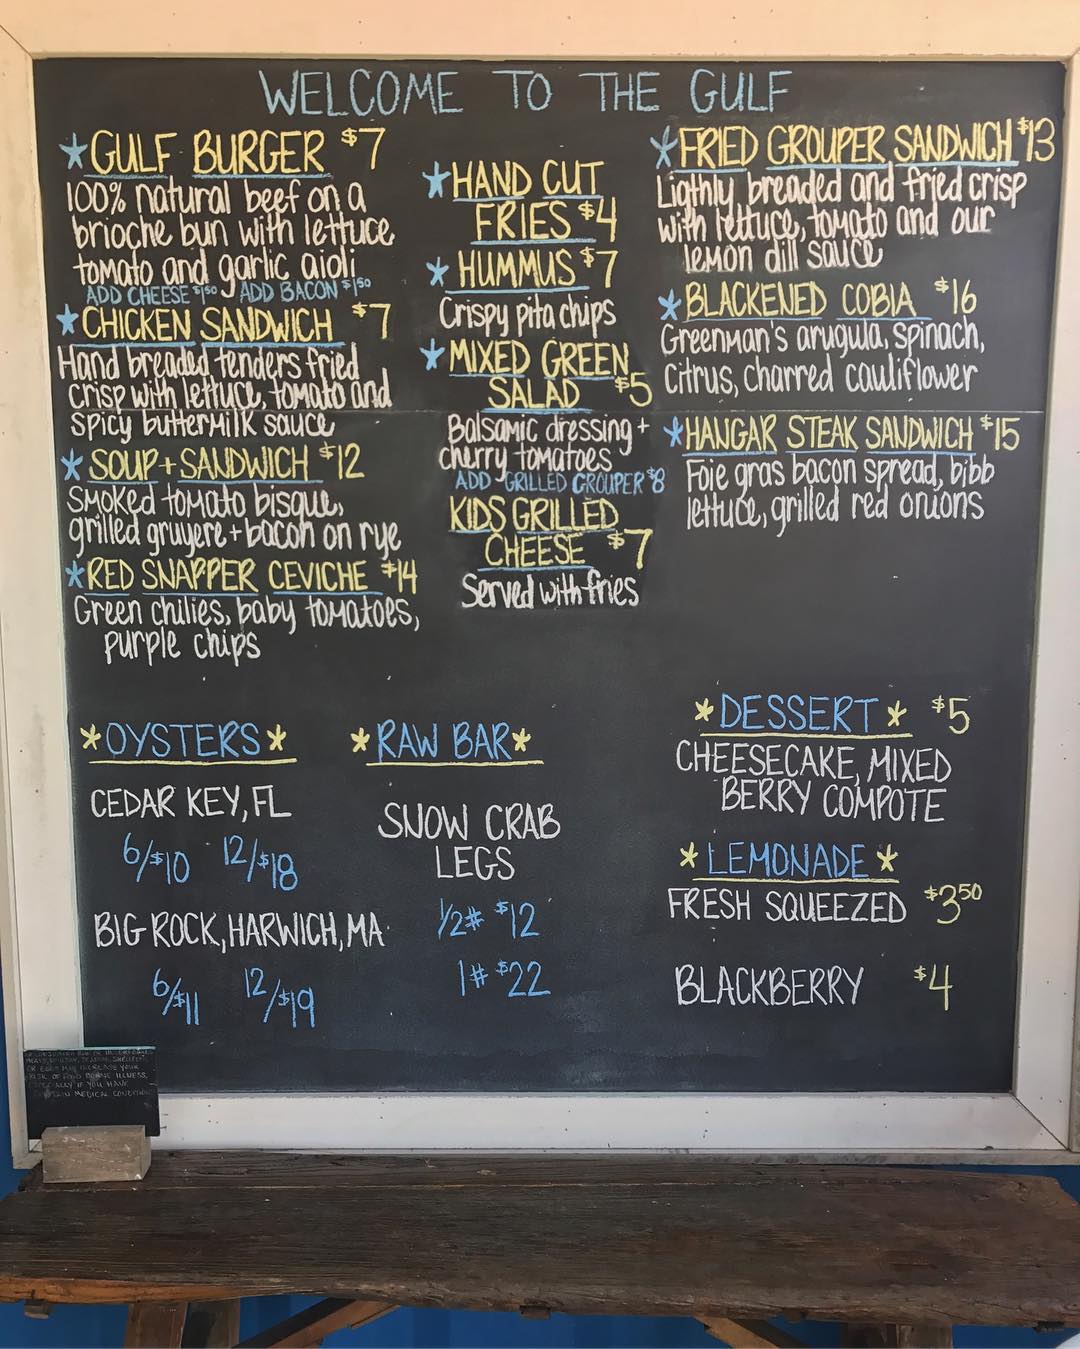 WELCOME TO THE GULF
*GULF BURGER $7
100% natural beef on a
brioche bun with lettuce
tomato and garlic aioli
ADD CHEESE $1.50 ADD BACON $1.50
*CHICKEN SANDWICH $7
Hand breaded tenders fried
crisp with lettuce, tomato and
spicy buttermilk sauce
*SOUP + SANDWICH $12
Smoked tomato bisque,
grilled gruyere + bacon on rye
*RED SNAPPER CEVICHE $14
Green chilies, baby tomatoes,
purple chips
*HAND CUT
FRIES $4
*HUMMUS $7
Crispy pita chips
*MIXED GREEN
SALAD $5
Balsamic dressing +
cherry tomatoes
ADD GRILLED GROUPER $8
KIDS GRILLED
CHEESE $7
Served with fries
*FRIED GROUPER SANDWICH $13
Ligthly breaded and fried crisp
with lettuce, tomato and our
lemon dill sauce
*BLACKENED COBIA $16
Greenman's arugula, spinach,
Citrus, charred cauliflower
*HANGAR STEAK SANDWICH $15
Foie gras bacon spread, bibb
lettuce, grilled red onions
*OYSTERS*
CEDAR KEY, FL
6/$10 12/$18
BIG ROCK, HARWICH, MA
6/$11 12/$19
*RAW BAR*
SNOW CRAB
LEGS
1/2# $12
1# $22
*DESSERT* $5
CHEESECAKE, MIXED
BERRY COMPOTE
*LEMONADE*
FRESH SQUEEZED $3.50
BLACKBERRY $4
OR EGGS MAY INCREASE YOUR
RISK OF FOOD BORNE ILLNESS,
ESPECIALLY IF YOU HAVE
MEDICAL